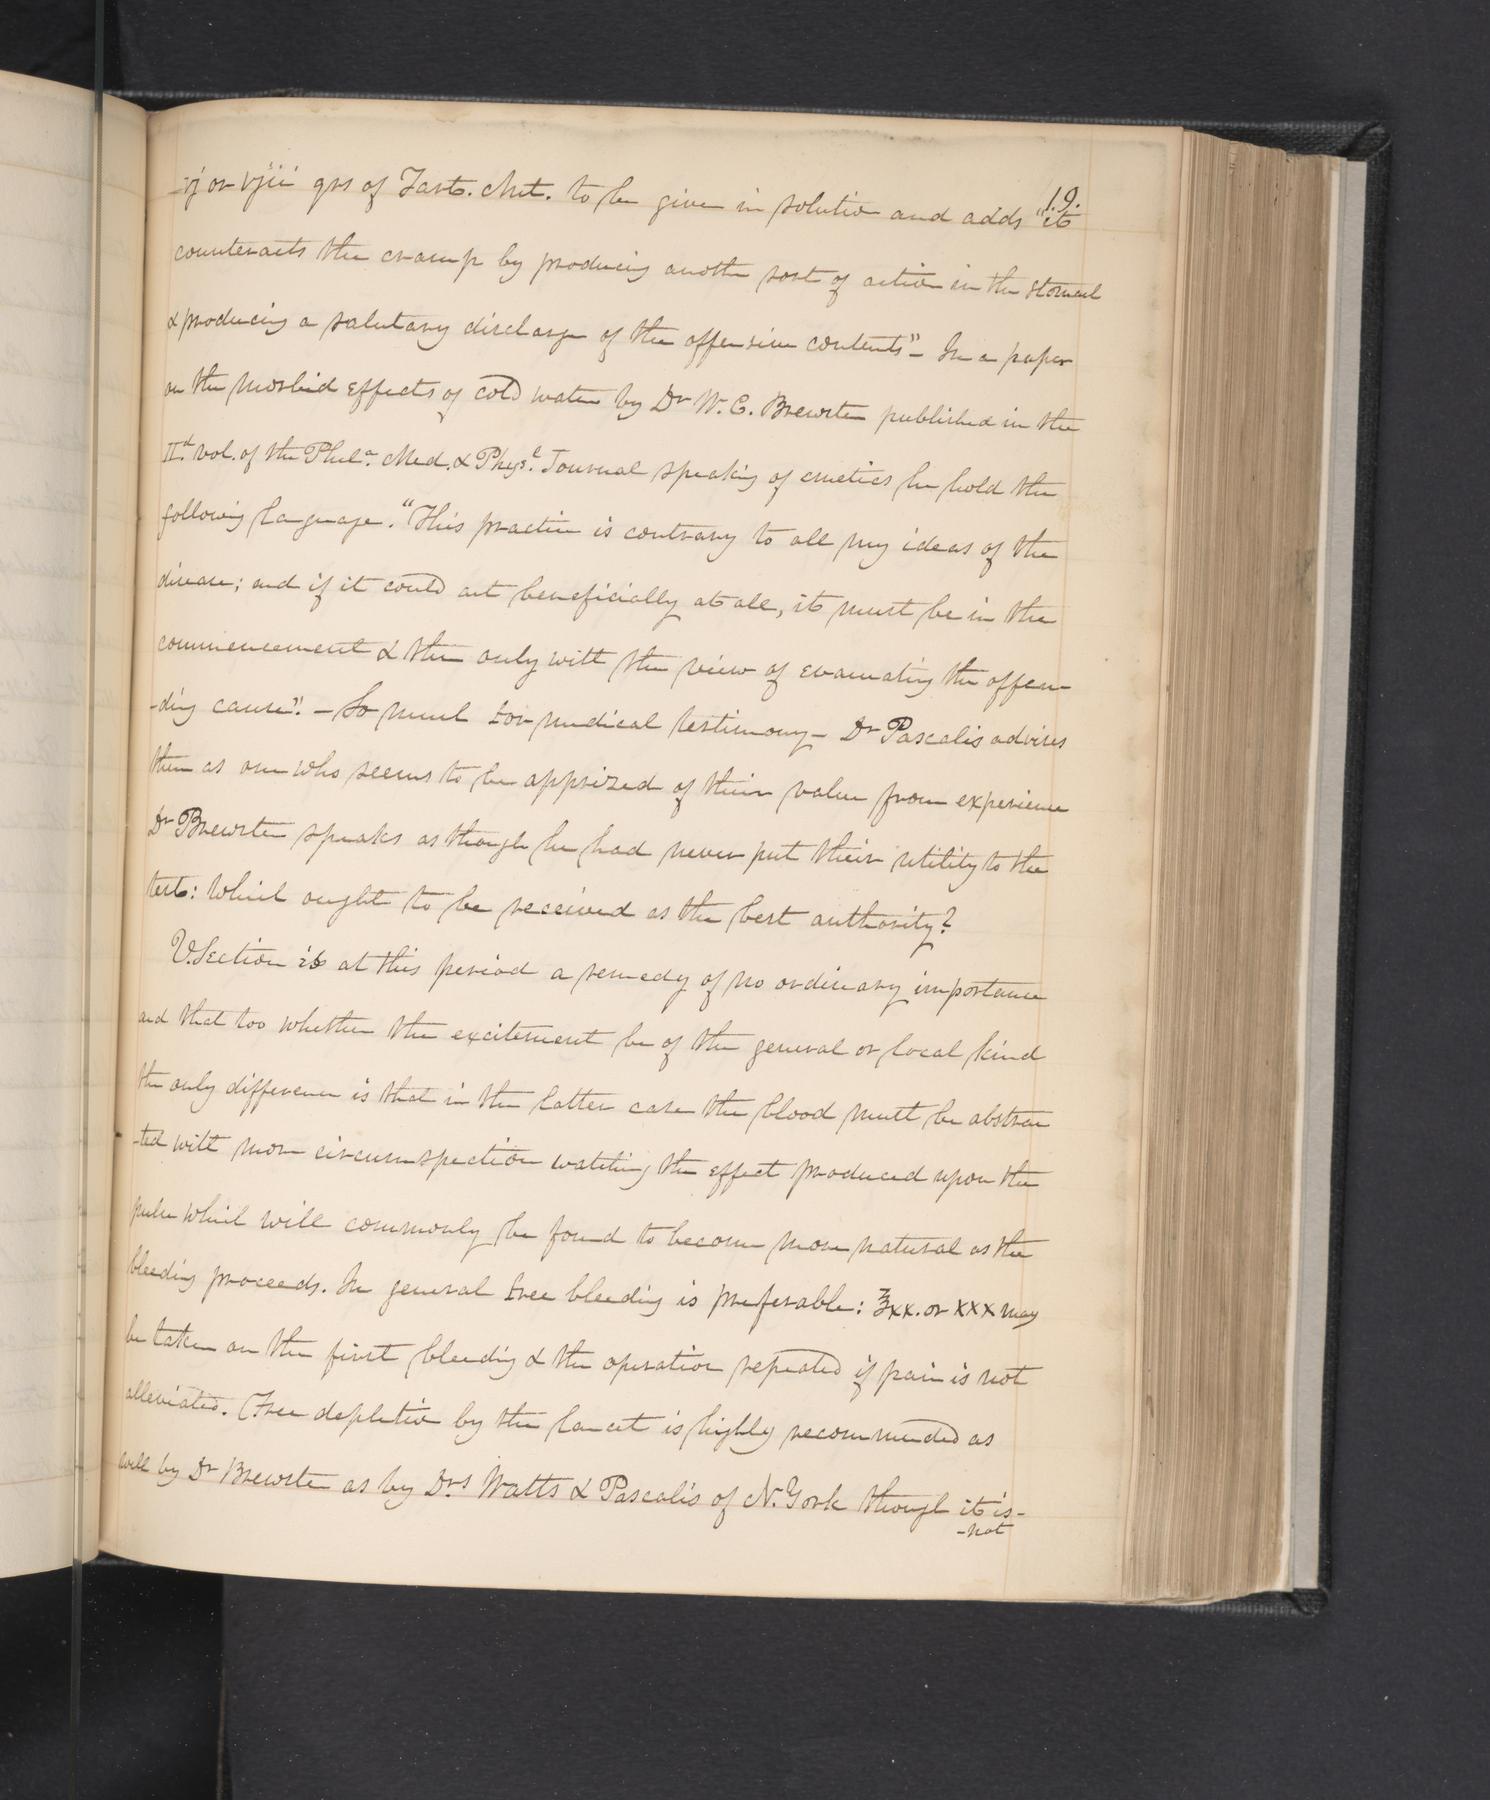 19.
vj or vjii grs of Tart. Ant. to be given in solution and adds "it
counteracts the cramp by producing another sort of action in the stomach
& producing a salutary discharge of the offensive contents"- In a paper
on the morbid effects of cold water by Dr W. C. Brewster published in the
IId. vol. of the Phila. Med. & Physl. Journal speaking of emetics he hold the
following language. "This practice is contrary to all my ideas of the
disease; and if it could act beneficially at all, it must be in the
commencement & then only with the view of evacuating the offen-
-ding cause". - So much for medical testimony - Dr Pascalis advises
them as one who seems to be apprized of their value from experience
Dr Brewster speaks as though he had never put their utility to the
test: which ought to be received as the best authority?
V.Section is at this period a remedy of no ordinary importance
and that too whether the excitement be of the general or local kind
the only difference is that in the latter case the blood must be abstrac
-ted with more circumspection watching the effect produced upon the
pulse which will commonly be found to become more natural as the
bleeding proceeds. In general free bleeding is preferable: ℥xx. or xxx may
be taken on the first bleeding & the operation repeated if pain is not
alleviated. Free depletion by the lancet is highly recommended as
well by Dr Brewster as by Drs Watts & Pascalis of N. York though it is-
-not